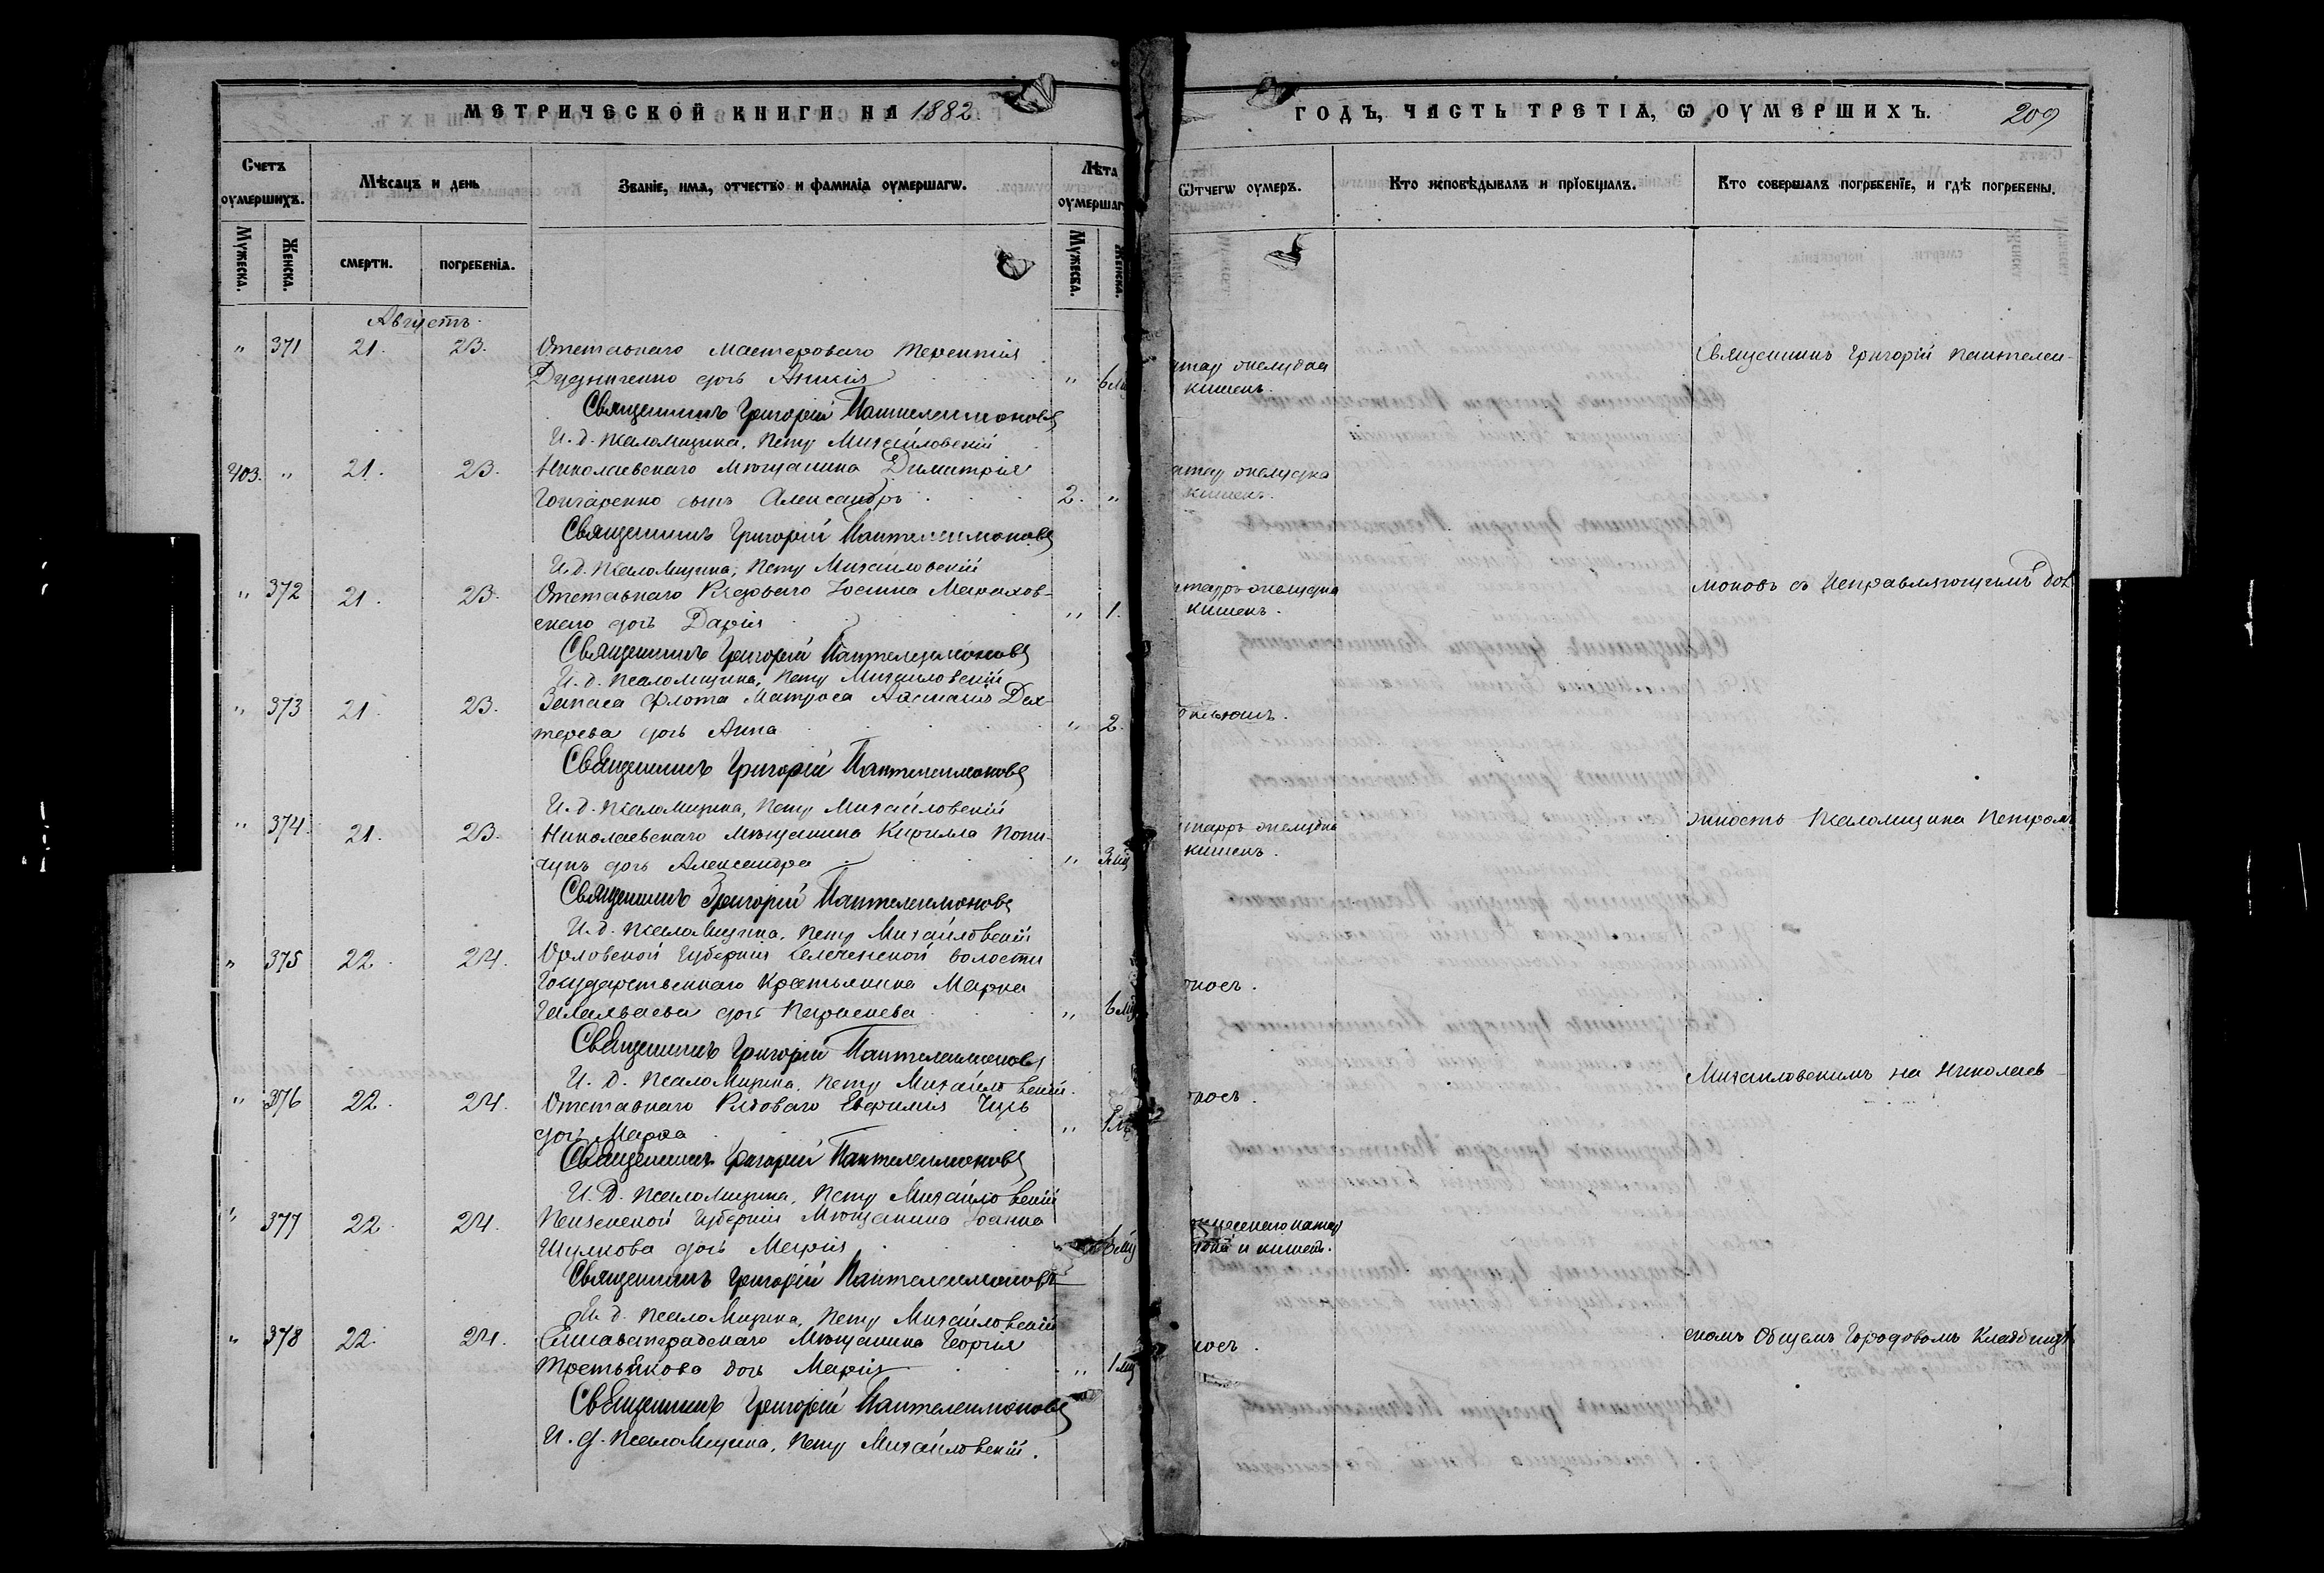 МЕТРИЧЕСКОЙ КНИГИ НА 1882
ГОДЪ, ЧАСТЬ ТРЕТІѦ, Ѡ ОУМЕРШИХЪ. 209
Счетъ оумершихъ.
Мѣсяцъ и день
Званіе, имя, отчество и фамилія оумершагѡ.
Лѣта оумершаг
Ѿтчегѡ оумеръ.
Кто исповѣдывалъ и пріобщалъ.
Кто совершалъ погребеніе, и гдѣ погребены.
Мужеска. Женска. смерти. погребенія. Мужеска. Женска.
Августъ
" 371 21. 23. Отставнаго Мастероваго Терентія
Дудниченко дочь " 6 кишекъ.
Священникъ Григорій Пантелеи-
Священникъ Григорій Пантелеимоновъ
И. д. Псаломщика, Петръ Михайловскій
403. " 21. 23. Николаевскаго Мѣщанина Димитрія
Гончаренко сынъ Александръ 2. " кишекъ.
Священникъ Григорій Пантелеимоновъ
И. д. Псаломщика, Петръ Михайловскій
" 372 21. 23. Отставнаго Рядоваго Іоанна Малахов-
скаго дочь Дарія " 1. кишекъ.
моновъ съ Исправляющимъ дол
Священникъ Григорій Пантелеимоновъ
И. д. Псаломщика, Петръ Михайловскій
" 373 21. 23. Запаса Флота Матроса Дех-
терева дочь Анна " 2.
Священникъ Григорій Пантелеимоновъ
И. д. Псаломщика, Петръ Михайловскій
" 374 21. 23. Николаевскаго Мѣщанина Кирилла
дочь Александра " 3 кишекъ.
жность Псаломщика Петромъ
Священникъ Григорій Пантелеимоновъ
И. д. Псаломщика, Петръ Михайловскій
" 375 22. 24. Орловской Губерніи волости
Государственнаго Крестьянина Марка
дочь Параскева " 6
Священникъ Григорій Пантелеимоновъ
И. д. Псаломщика, Петръ Михайловскій.
Михайловскимъ на Николаев-
" 376 22. 24. Отставнаго Рядоваго Евфимія
дочь " 1
Священникъ Григорій Пантелеимоновъ
И. д. Псаломщика, Петръ Михайловскій
" 377 22. 24. Пензенской Губерніи Мѣщанина Іоанна
Шулкова дочь Марія 6 и кишекъ.
Священникъ Григорій Пантелеимоновъ
И. д. Псаломщика, Петръ Михайловскій
" 378 22. 24. Елисаветградскаго Мѣщанина Георгія
Третьякова дочь Марія " 1
скомъ Общемъ Городовомъ Кладбищѣ
Священникъ Григорій Пантелеимоновъ
И. д. Псаломщика, Петръ Михайловскій.